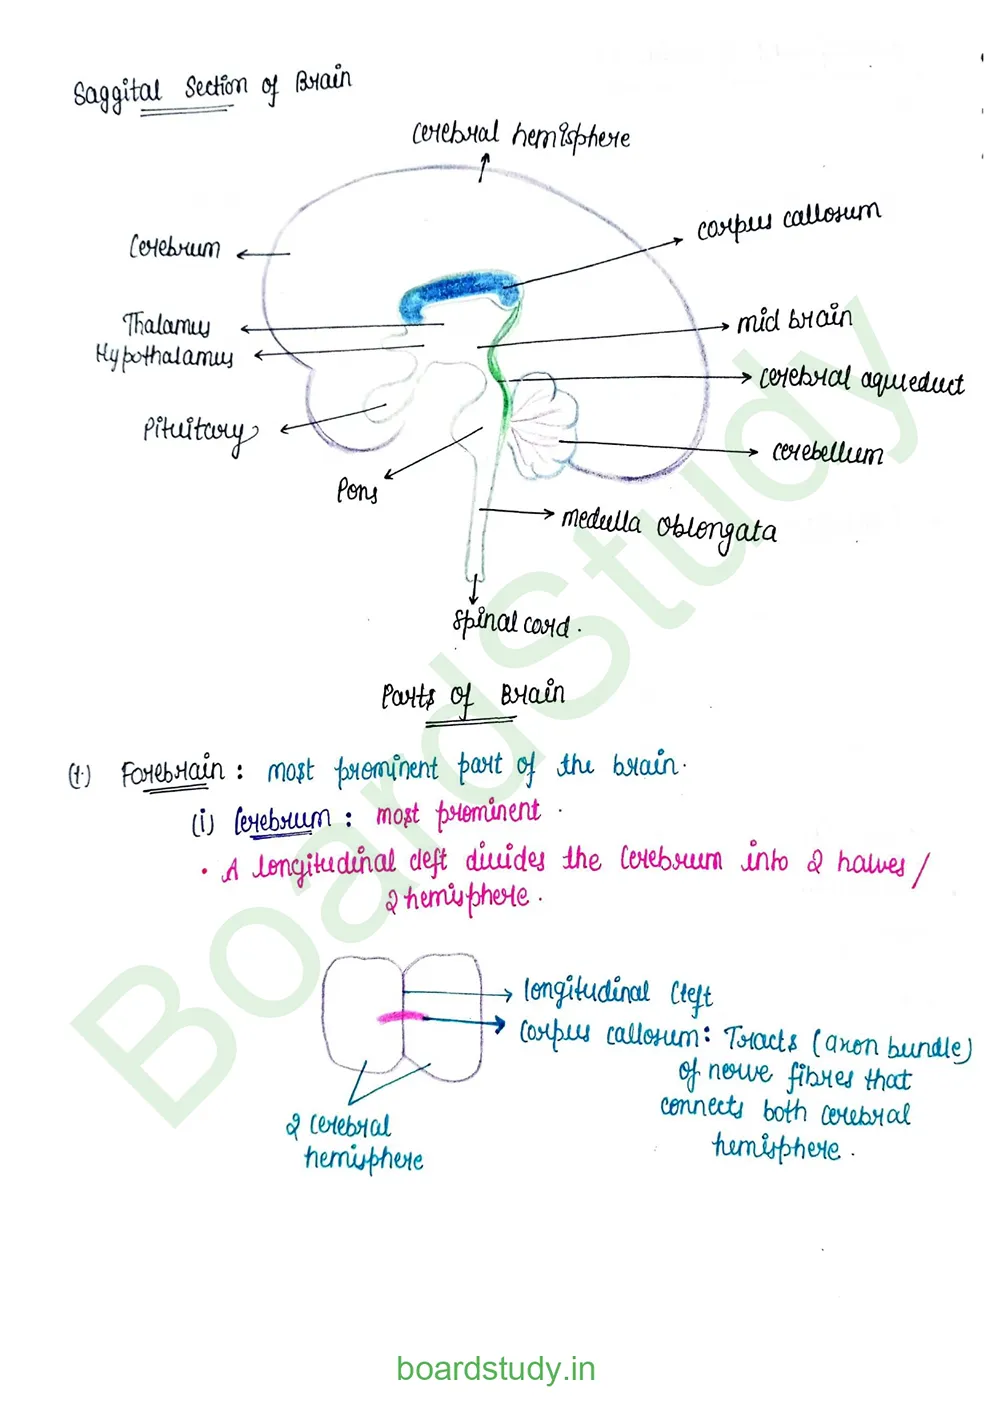 Saggital Section of Brain
cerebral hemisphere
corpus callosum
Cerebrum
mid brain
Thalamus
Hypothalamus
cerebral aqueduct
Pituitary
cerebellum
Pons
medulla oblongata
spinal cord.
Parts of Brain
(1.) Forebrain : most prominent part of the brain.
(i) Cerebrum : most prominent .
• A longitudinal cleft divides the Cerebrum into 2 halves /
2 hemisphere.
longitudinal Cleft
Corpus callosum : Tracts (axon bundle)
of nerve fibres that
connects both cerebral
hemisphere .
2 Cerebral
hemisphere
BoardStudy
boardstudy.in